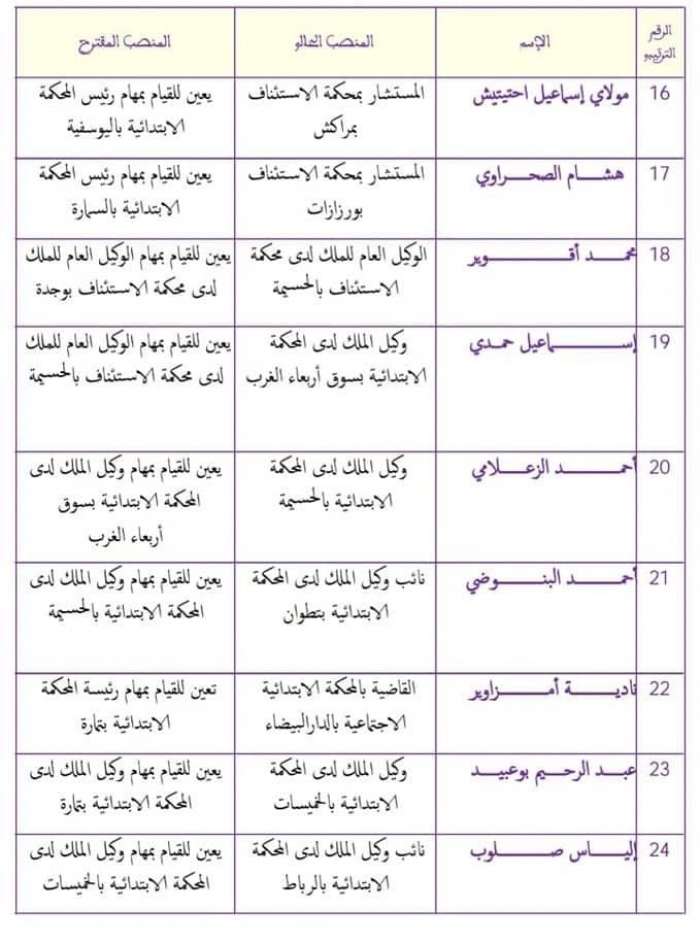 الرقم
الترتيبي
الإسم
المنصب الحالي
المنصب المقترح
16
مولاي إسماعيل احتيتيش
المستشار بمحكمة الاستئناف
بمراكش
يعين للقيام بمهام رئيس المحكمة
الابتدائية باليوسفية
17
هشام الصحراوي
المستشار بمحكمة الاستئناف
بورزازات
يعين للقيام بمهام رئيس المحكمة
الابتدائية بالسمارة
18
محمد أقوير
الوكيل العام للملك لدى محكمة
الاستئناف بالحسيمة
يعين للقيام بمهام الوكيل العام للملك
لدى محكمة الاستئناف بوجدة
19
إسماعيل حمدي
وكيل الملك لدى المحكمة
الابتدائية بسوق أربعاء الغرب
يعين للقيام بمهام الوكيل العام للملك
لدى محكمة الاستئناف بالحسيمة
20
أحمد الزعلامي
وكيل الملك لدى المحكمة
الابتدائية بالحسيمة
يعين للقيام بمهام وكيل الملك لدى
المحكمة الابتدائية بسوق
أربعاء الغرب
21
أحمد البنوضي
نائب وكيل الملك لدى المحكمة
الابتدائية بتطوان
يعين للقيام بمهام وكيل الملك لدى
المحكمة الابتدائية بالحسيمة
22
نادية أمزاوير
القاضية بالمحكمة الابتدائية
الاجتماعية بالدارالبيضاء
تعين للقيام بمهام رئيسة المحكمة
الابتدائية بتمارة
23
عبد الرحيم بوعبيد
وكيل الملك لدى المحكمة
الابتدائية بالخميسات
يعين للقيام بمهام وكيل الملك لدى
المحكمة الابتدائية بتمارة
24
إلياس صلوب
نائب وكيل الملك لدى المحكمة
الابتدائية بالرباط
يعين للقيام بمهام وكيل الملك لدى
المحكمة الابتدائية بالخميسات